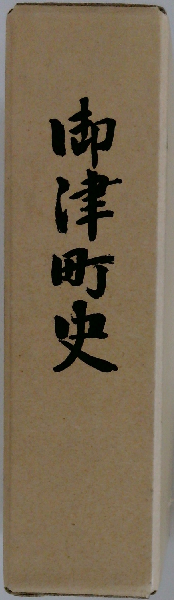 御津町史